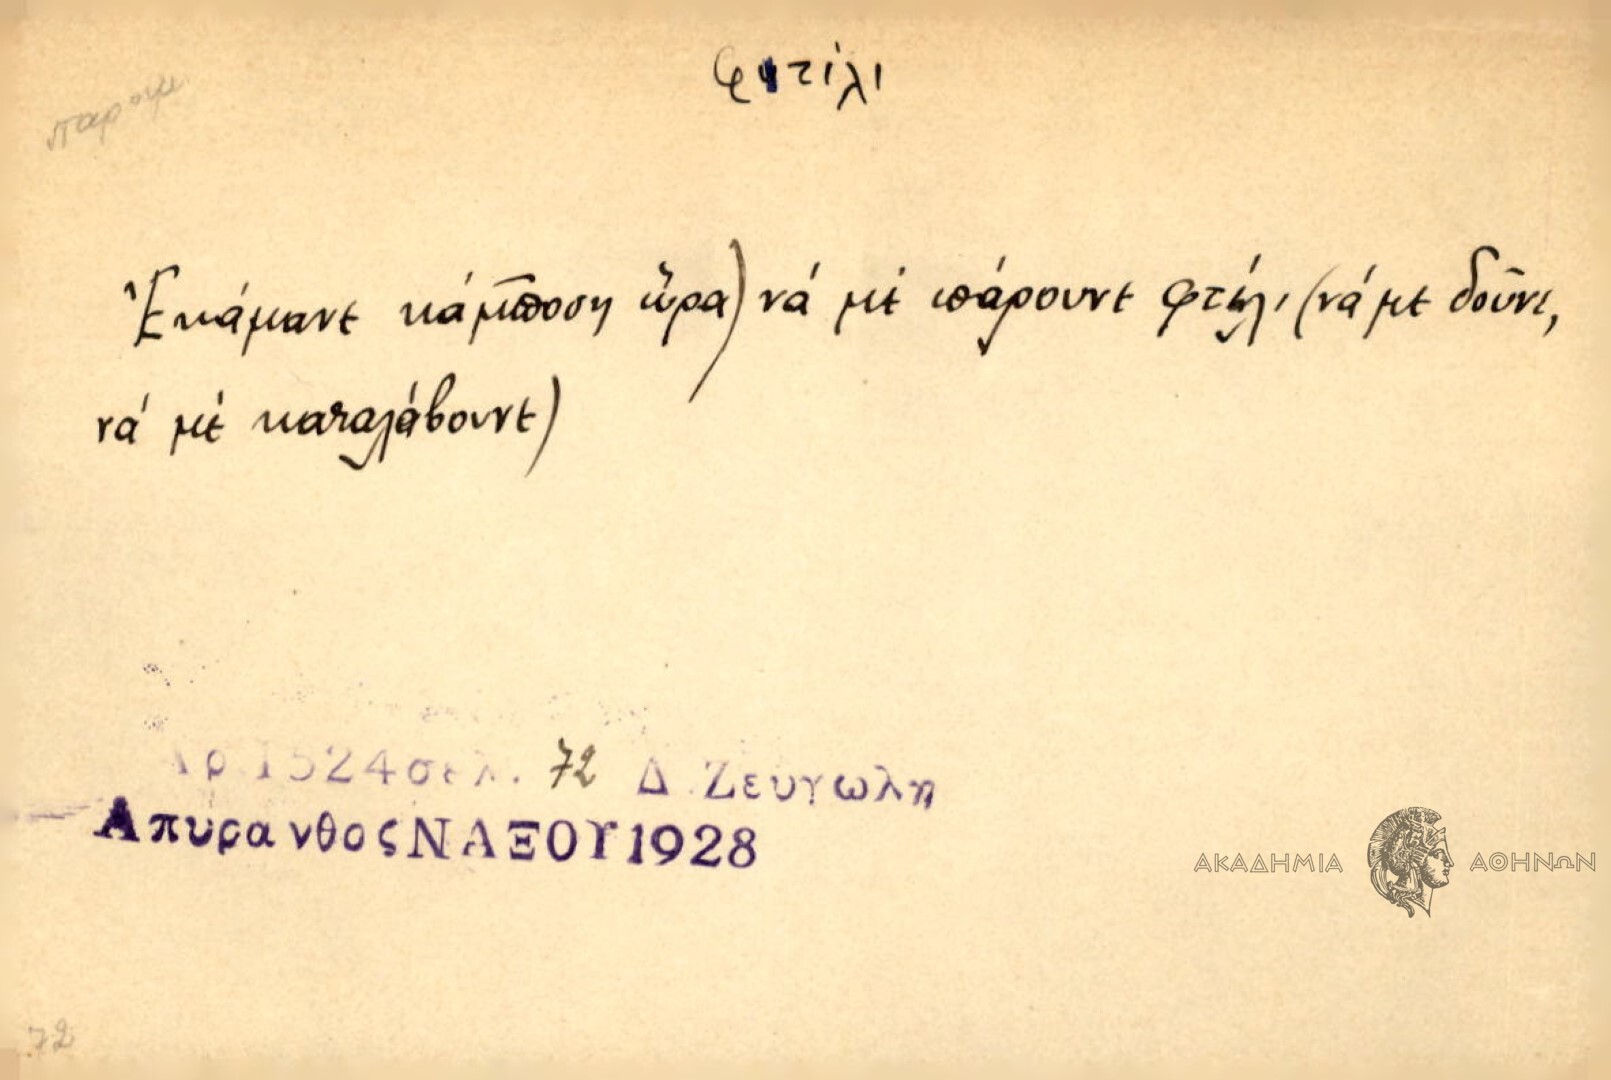 φυτίλι
παροιμ.
Ἐκάμανε κάμποση ὥρα) νά μέ πάρουνε φτίλι (νά με δοῦνε,
νά μέ καταλάβουνε)
Αρ. 1524 σελ. 72 Δ. Ζευγωλη
Απυρανθος ΝΑΞΟΥ 1928
ΑΚΑΔΗΜΙΑ ΑΘΗΝΩΝ
72